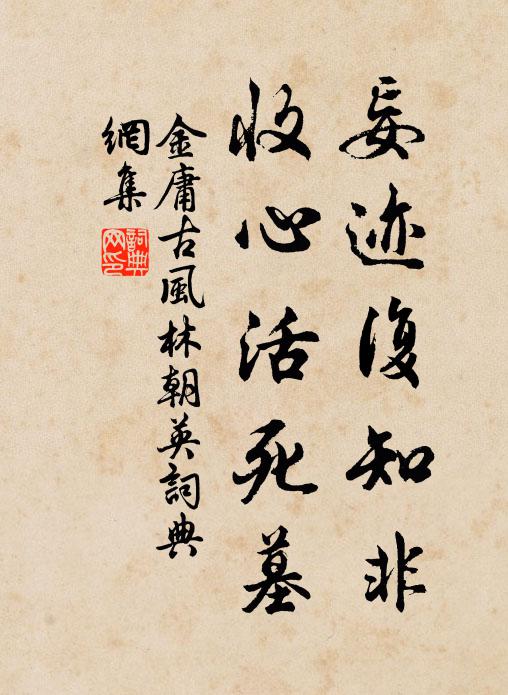 妄迹復知非
收心活死墓
金庸古風林朝英詞典
網集
詞典網印